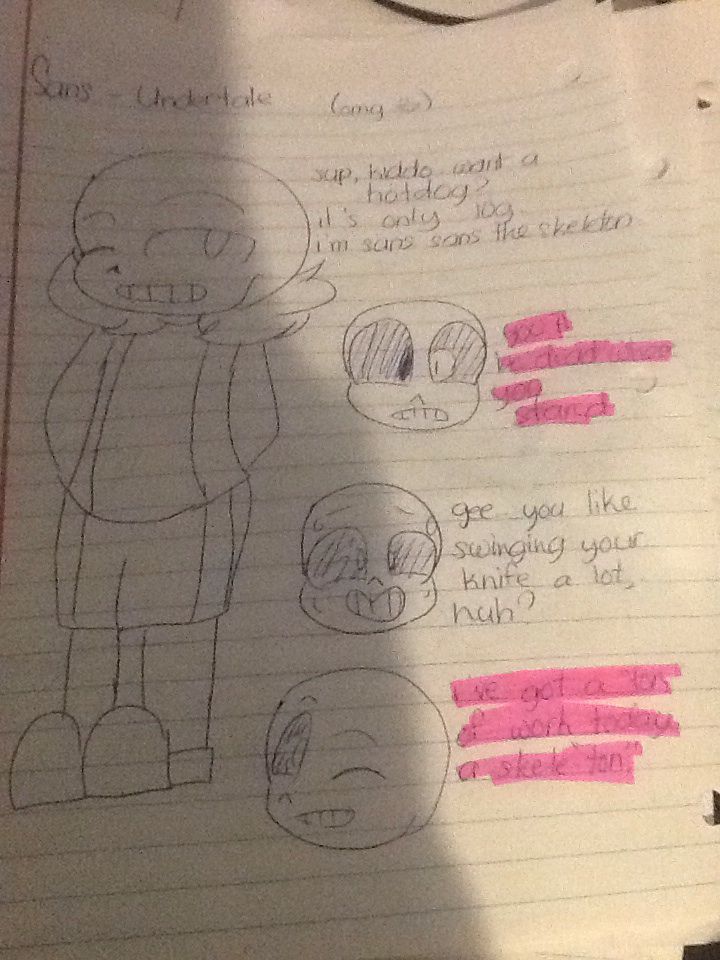 Sans - Undertale (omg
sup, kiddo want a
hotdog?
it's only 10g
i'm sans sans the skeleton
dead where
you
stand
gee you like
swinging your
knife a lot,
huh?
i've got a ton
of work today
a skele"ton"